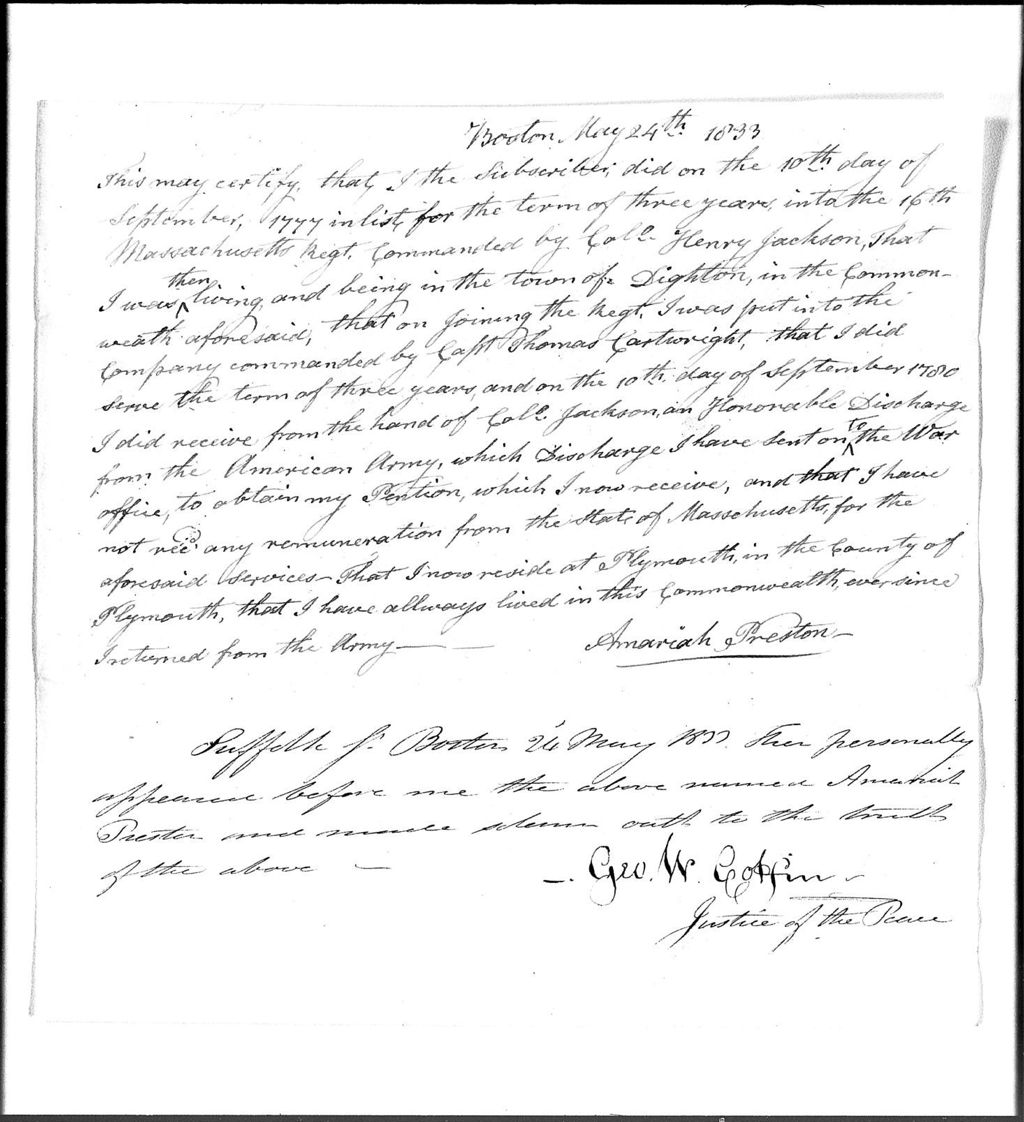 Boston, May 24th 1833
This may certify, that, I the Subscriber, did on the 10th day of
September, 1777 inlist, for the term of three years, into the 16th
Massachusetts Regt. Commanded by Colo. Henry Jackson, That
then
I was living, and being in the town of Dighton, in the Common-
weath aforesaid, that on joining the Regt. I was put into the
Company commanded by Capt Thomas Cartwright, that I did
serve the term of three years, and on the 10th day of September 1780
I did receive from the hand of Colo. Jackson, an Honorable Discharge
from the American Army, which Discharge I have sent on to the War
office, to obtain my Pention, which I now receive, and that I have
not recd. any remuneration from the State of Massachusetts, for the
aforesaid services - That I now reside at Plymouth, in the County of
Plymouth, that I have allways lived in this Commonwealth, ever since
I returned from the Army —
Amariah Preston
Suffolk Ss. Boston 24 May 1833. Then personally
appeared before me the above named Amariah
Preston and made solemn oath to the truth
of the above —
Geo. W. Coffin
Justice of the Peace